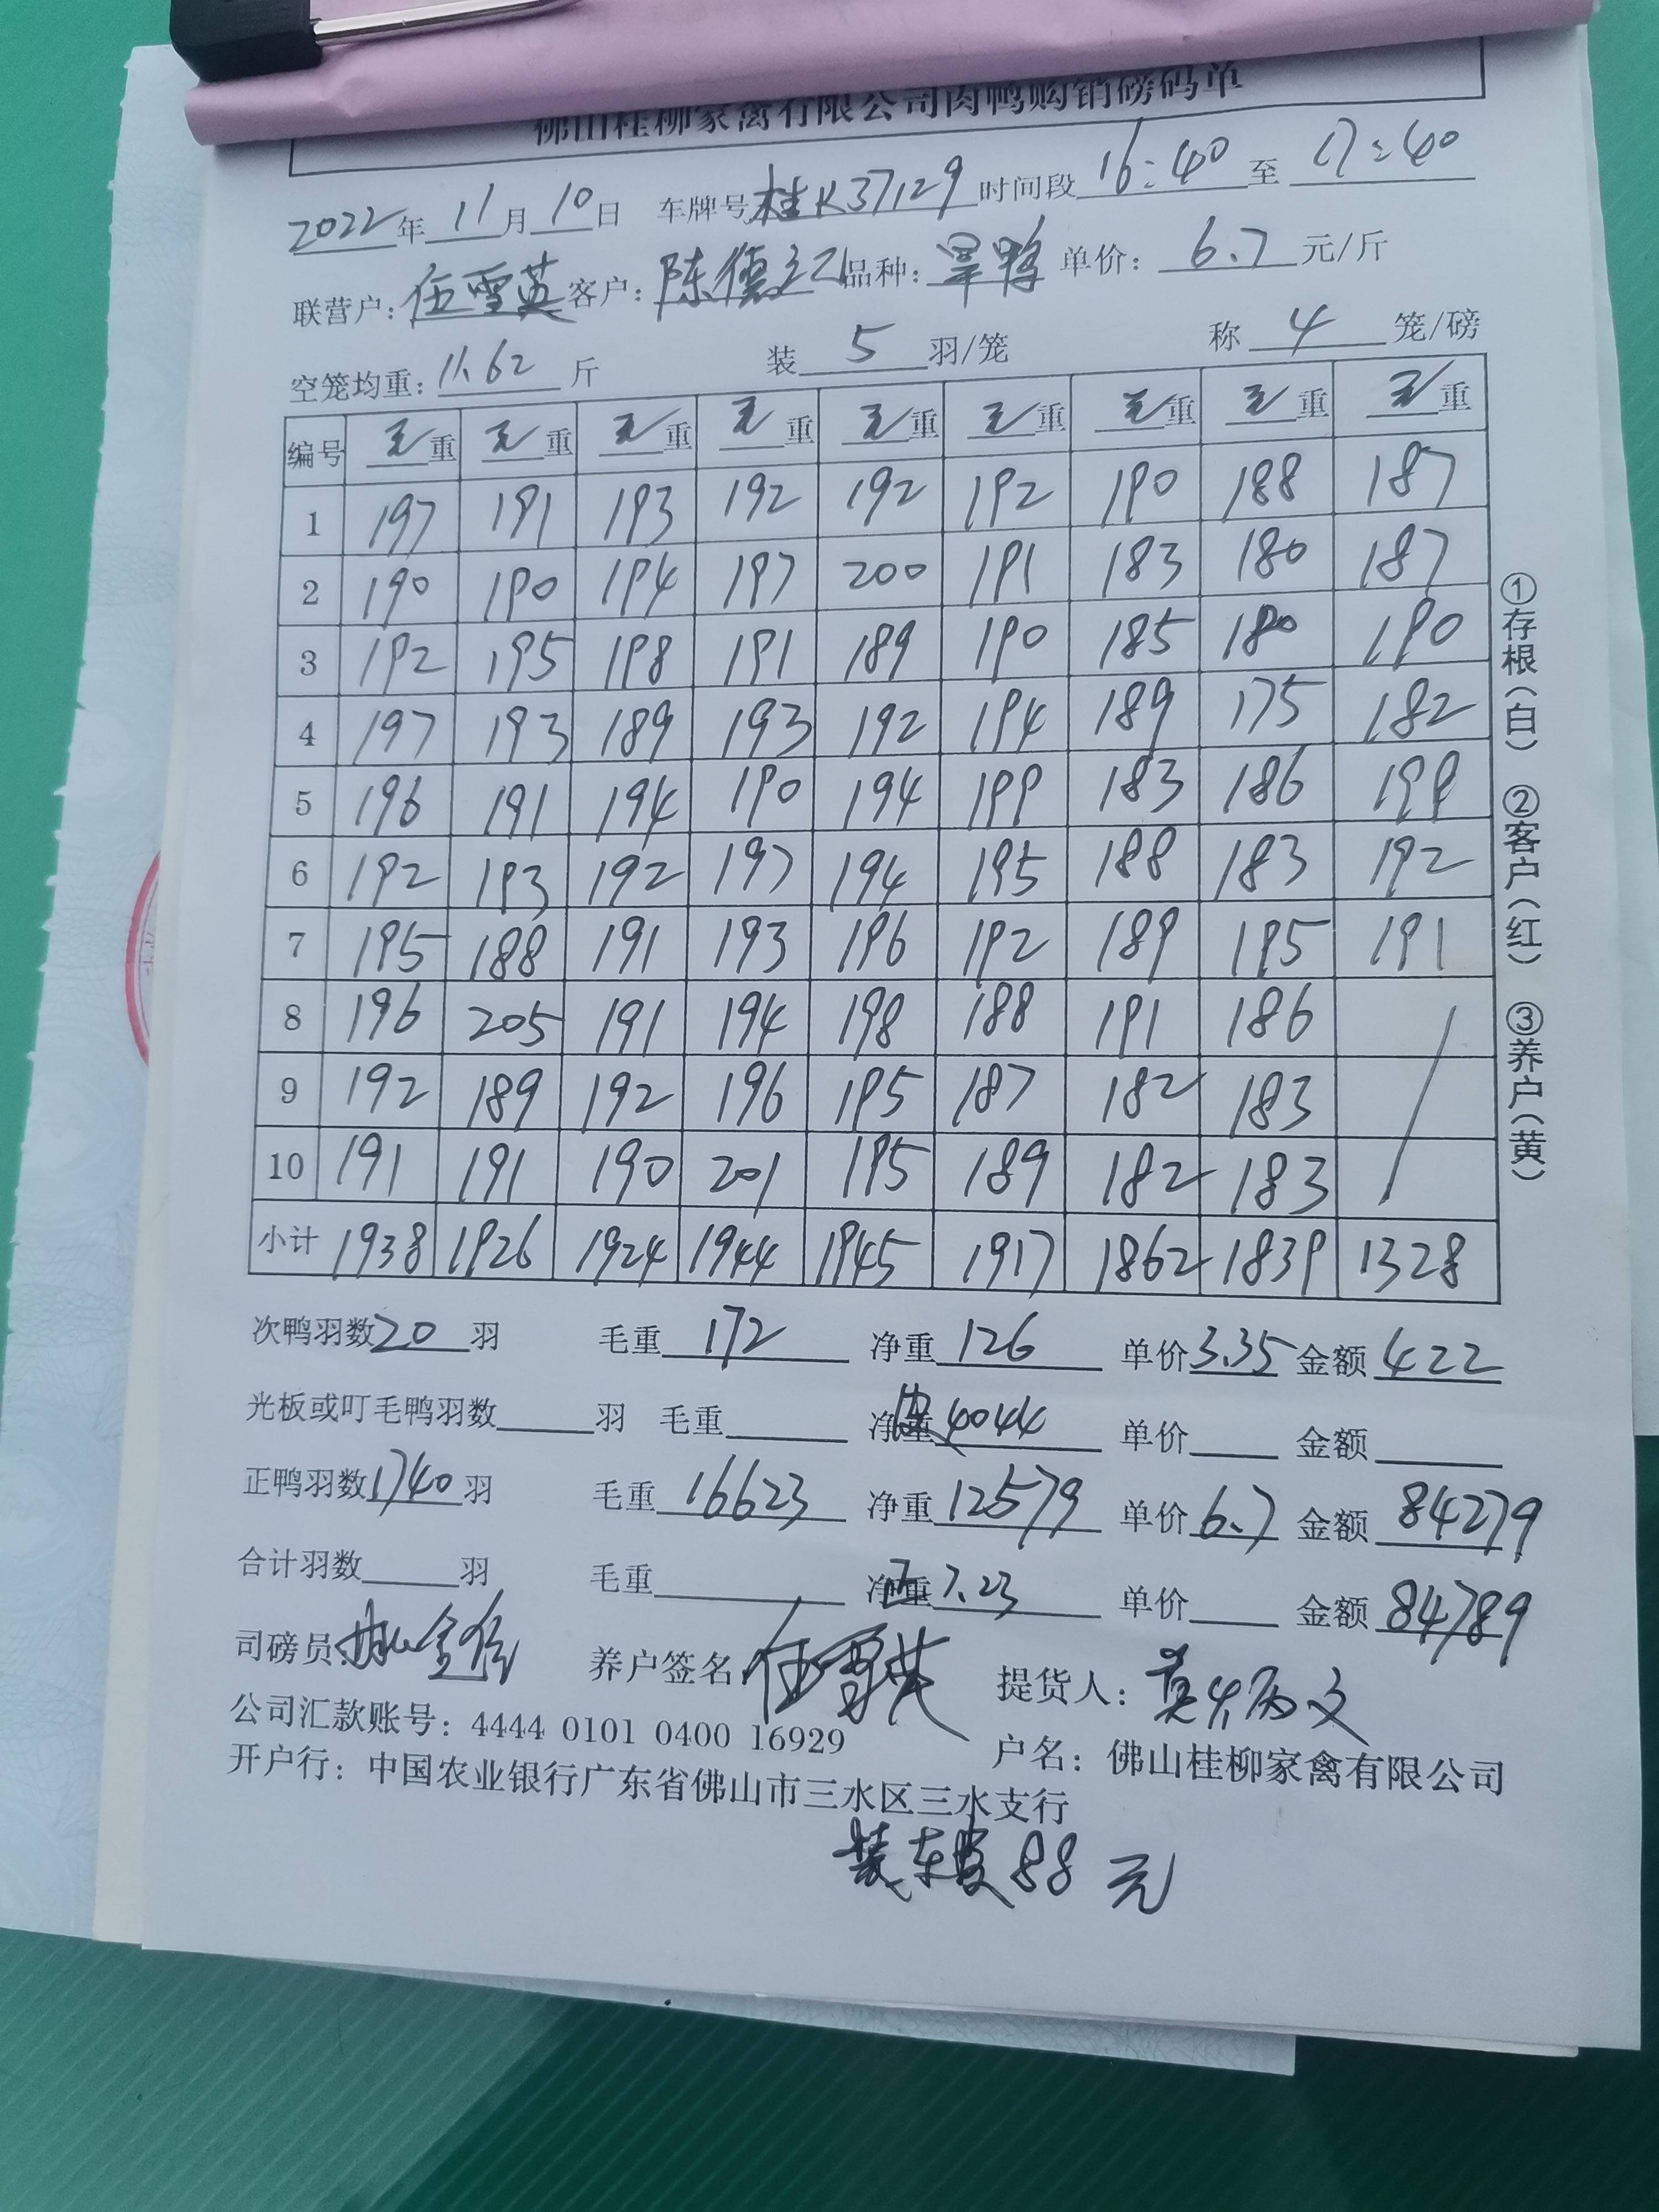 佛山桂柳家禽有限公司肉鸭购销磅码单
2022年11月10日 车牌号桂K37129时间段16:40至17:40
联营户:伍雪英客户:陈德 品种:旱鸭 单价:6.7元/斤
空笼均重:11.62斤 装5羽/笼 称4笼/磅
编号 毛重 毛重 毛重 毛重 毛重 毛重 毛重 毛重 毛重
1 197 191 193 192 192 192 190 188 187
2 190 190 194 197 200 191 183 180 187
3 192 195 198 191 189 190 185 180 190
4 197 193 189 193 192 194 189 175 182
5 196 191 194 190 194 199 183 186 199
6 192 193 192 197 194 195 188 183 192
7 195 188 191 193 196 192 189 195 191
8 196 205 191 194 198 188 191 186
9 192 189 192 196 195 187 182 183
10 191 191 190 201 195 189 182 183
小计 1938 1926 1924 1944 1945 1917 1862 1839 1328
次鸭羽数20羽 毛重172 净重126 单价3.35 金额422
光板或叮毛鸭羽数 羽 毛重 净重4044 单价 金额
正鸭羽数1740羽 毛重16623 净重12579 单价6.7 金额84279
合计羽数 羽 毛重 净重7.23 单价 金额84789
司磅员: 养户签名 伍雪英 提货人:
公司汇款账号:4444 0101 0400 16929 户名:佛山桂柳家禽有限公司
开户行:中国农业银行广东省佛山市三水区三水支行
装车费88元
①存根(白) ②客户(红) ③养户(黄)